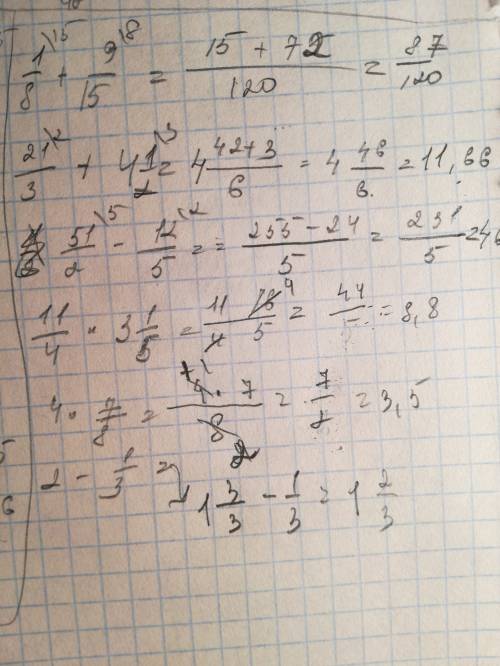 1/8 \15 + 9/15 \8 = (15 + 72)/120 = 87/120
21/3 \2 + 4 1/2 \3 = 4 (42+3)/6 = 4 46/6 = 11,66
51/2 \5 - 12/5 \2 = = (255 - 24)/5 = 231/5 = 46
11/4 · 3 1/5 = (11 16)/(4 5) 4 = 44/ = 8,8
4 · 7/8 = (4 · 7)/8 1 2 = 7/2 = 3,5
2 - 1/3 = 1 3/3 - 1/3 = 1 2/3
5
6